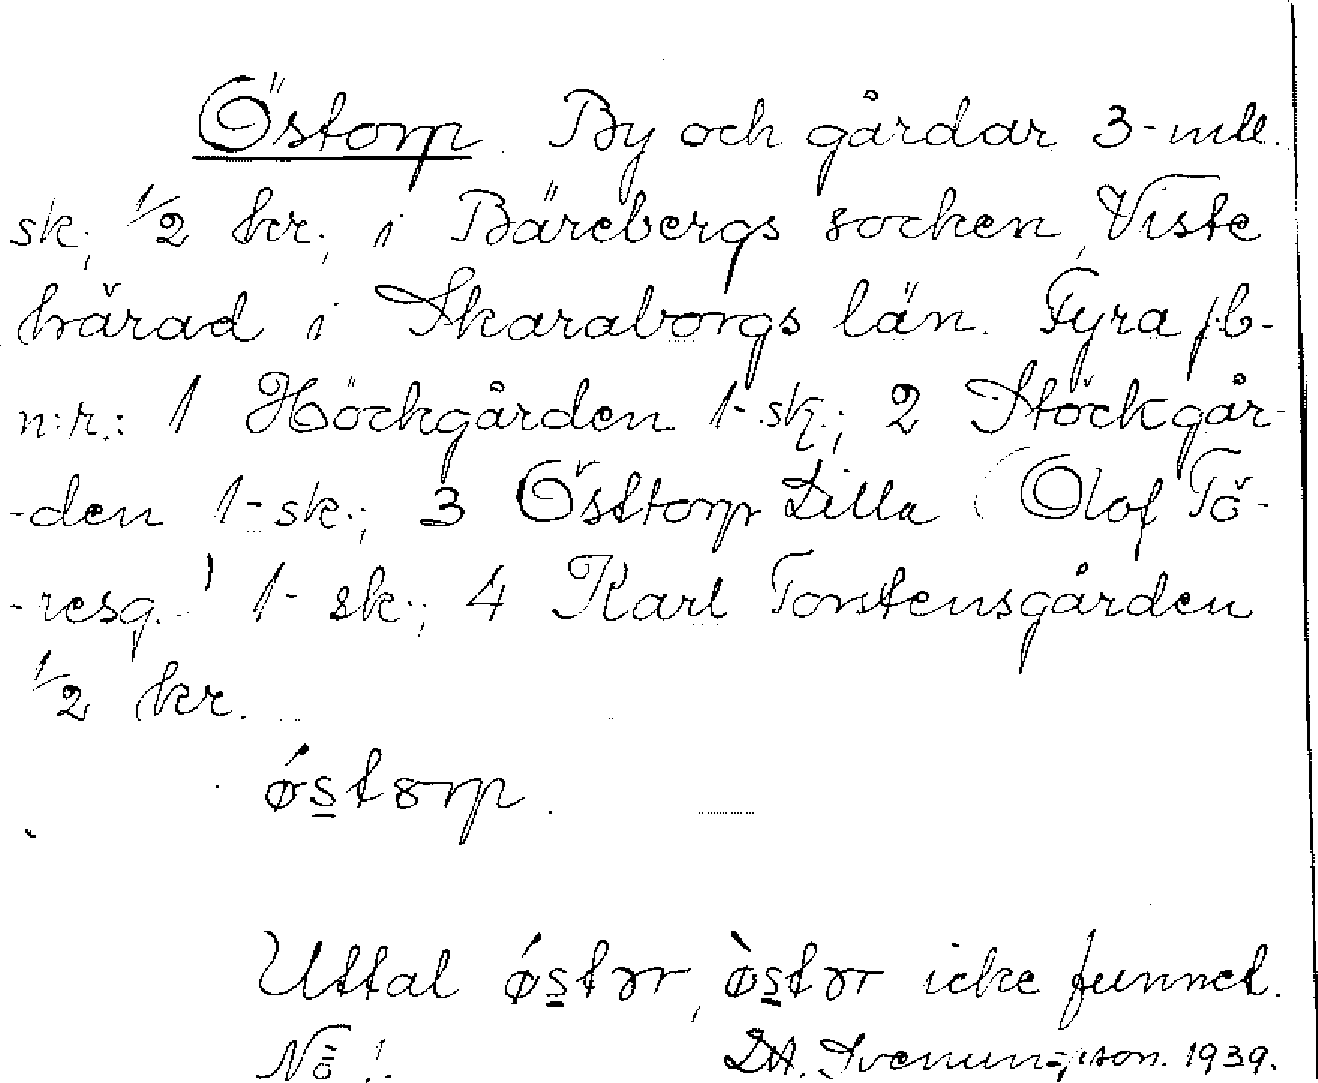 Östorp. By och gårdar 3-mtl.
sk, 1/2 kr, i Bärebergs socken, Viste
härad i Skaraborgs län. Fyra jb-
n:r.: 1 Höckgården 1-sk.; 2 Stöckgår-
-den 1-sk.; 3 Östtorp Lilla (Olof Tö-
-resg.) 1-sk.; 4 Karl Torstensgården
1/2 kr.
ǿstorp.
Uttal ǿstər, ø̀stər icke funnet.
Nö!. D.A. Svenungsson. 1939.